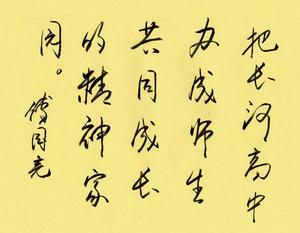 把长河高中
办成师生
共同成长
的精神家
园。
傅国亮